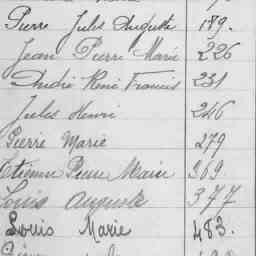 Pierre Jules Auguste 189.
Jean Pierre Marie 226
André René Francis 231
Jules Henri 246
Pierre Marie 279
Etienne Pierre Marie 369
Louis Auguste 377
Louis Marie 483.